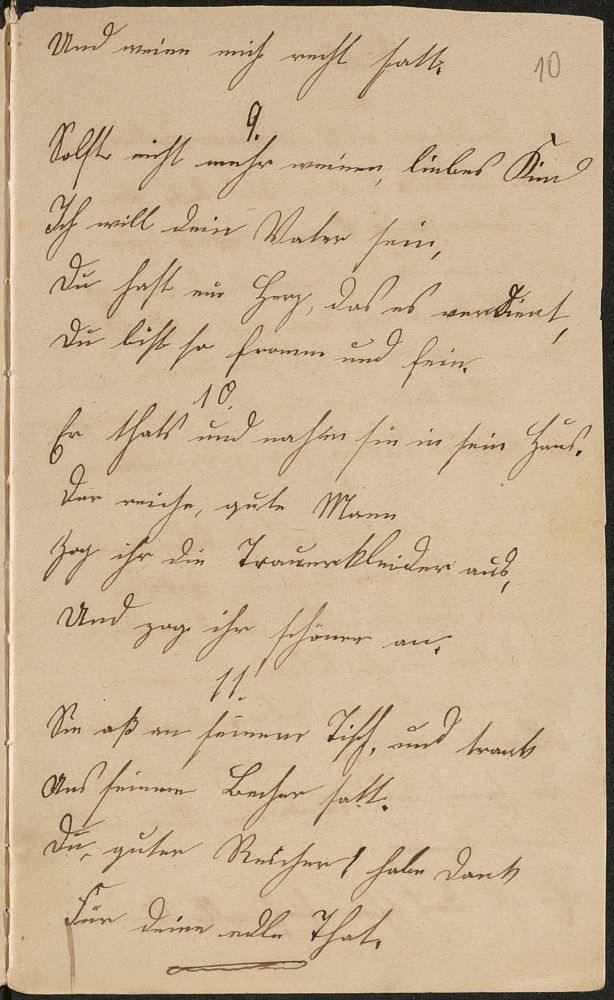 Und weine mich recht satt.
10
9.
Sollst nicht mehr weinen, liebes Kind
Ich will dein Vater sein,
Du hast ein Herz, das es verdient,
Du bist so fromm und fein.
10.
Er thats und nahm sie in sein Haus.
Der reiche, gute Mann
Zog ihr die Trauerkleider aus,
Und zog ihr schönre an.
11.
Sie aß an seinem Tisch, und trank
Aus seinem Becher satt.
Du, guter Reicher! habe Dank
Für deine edle That.